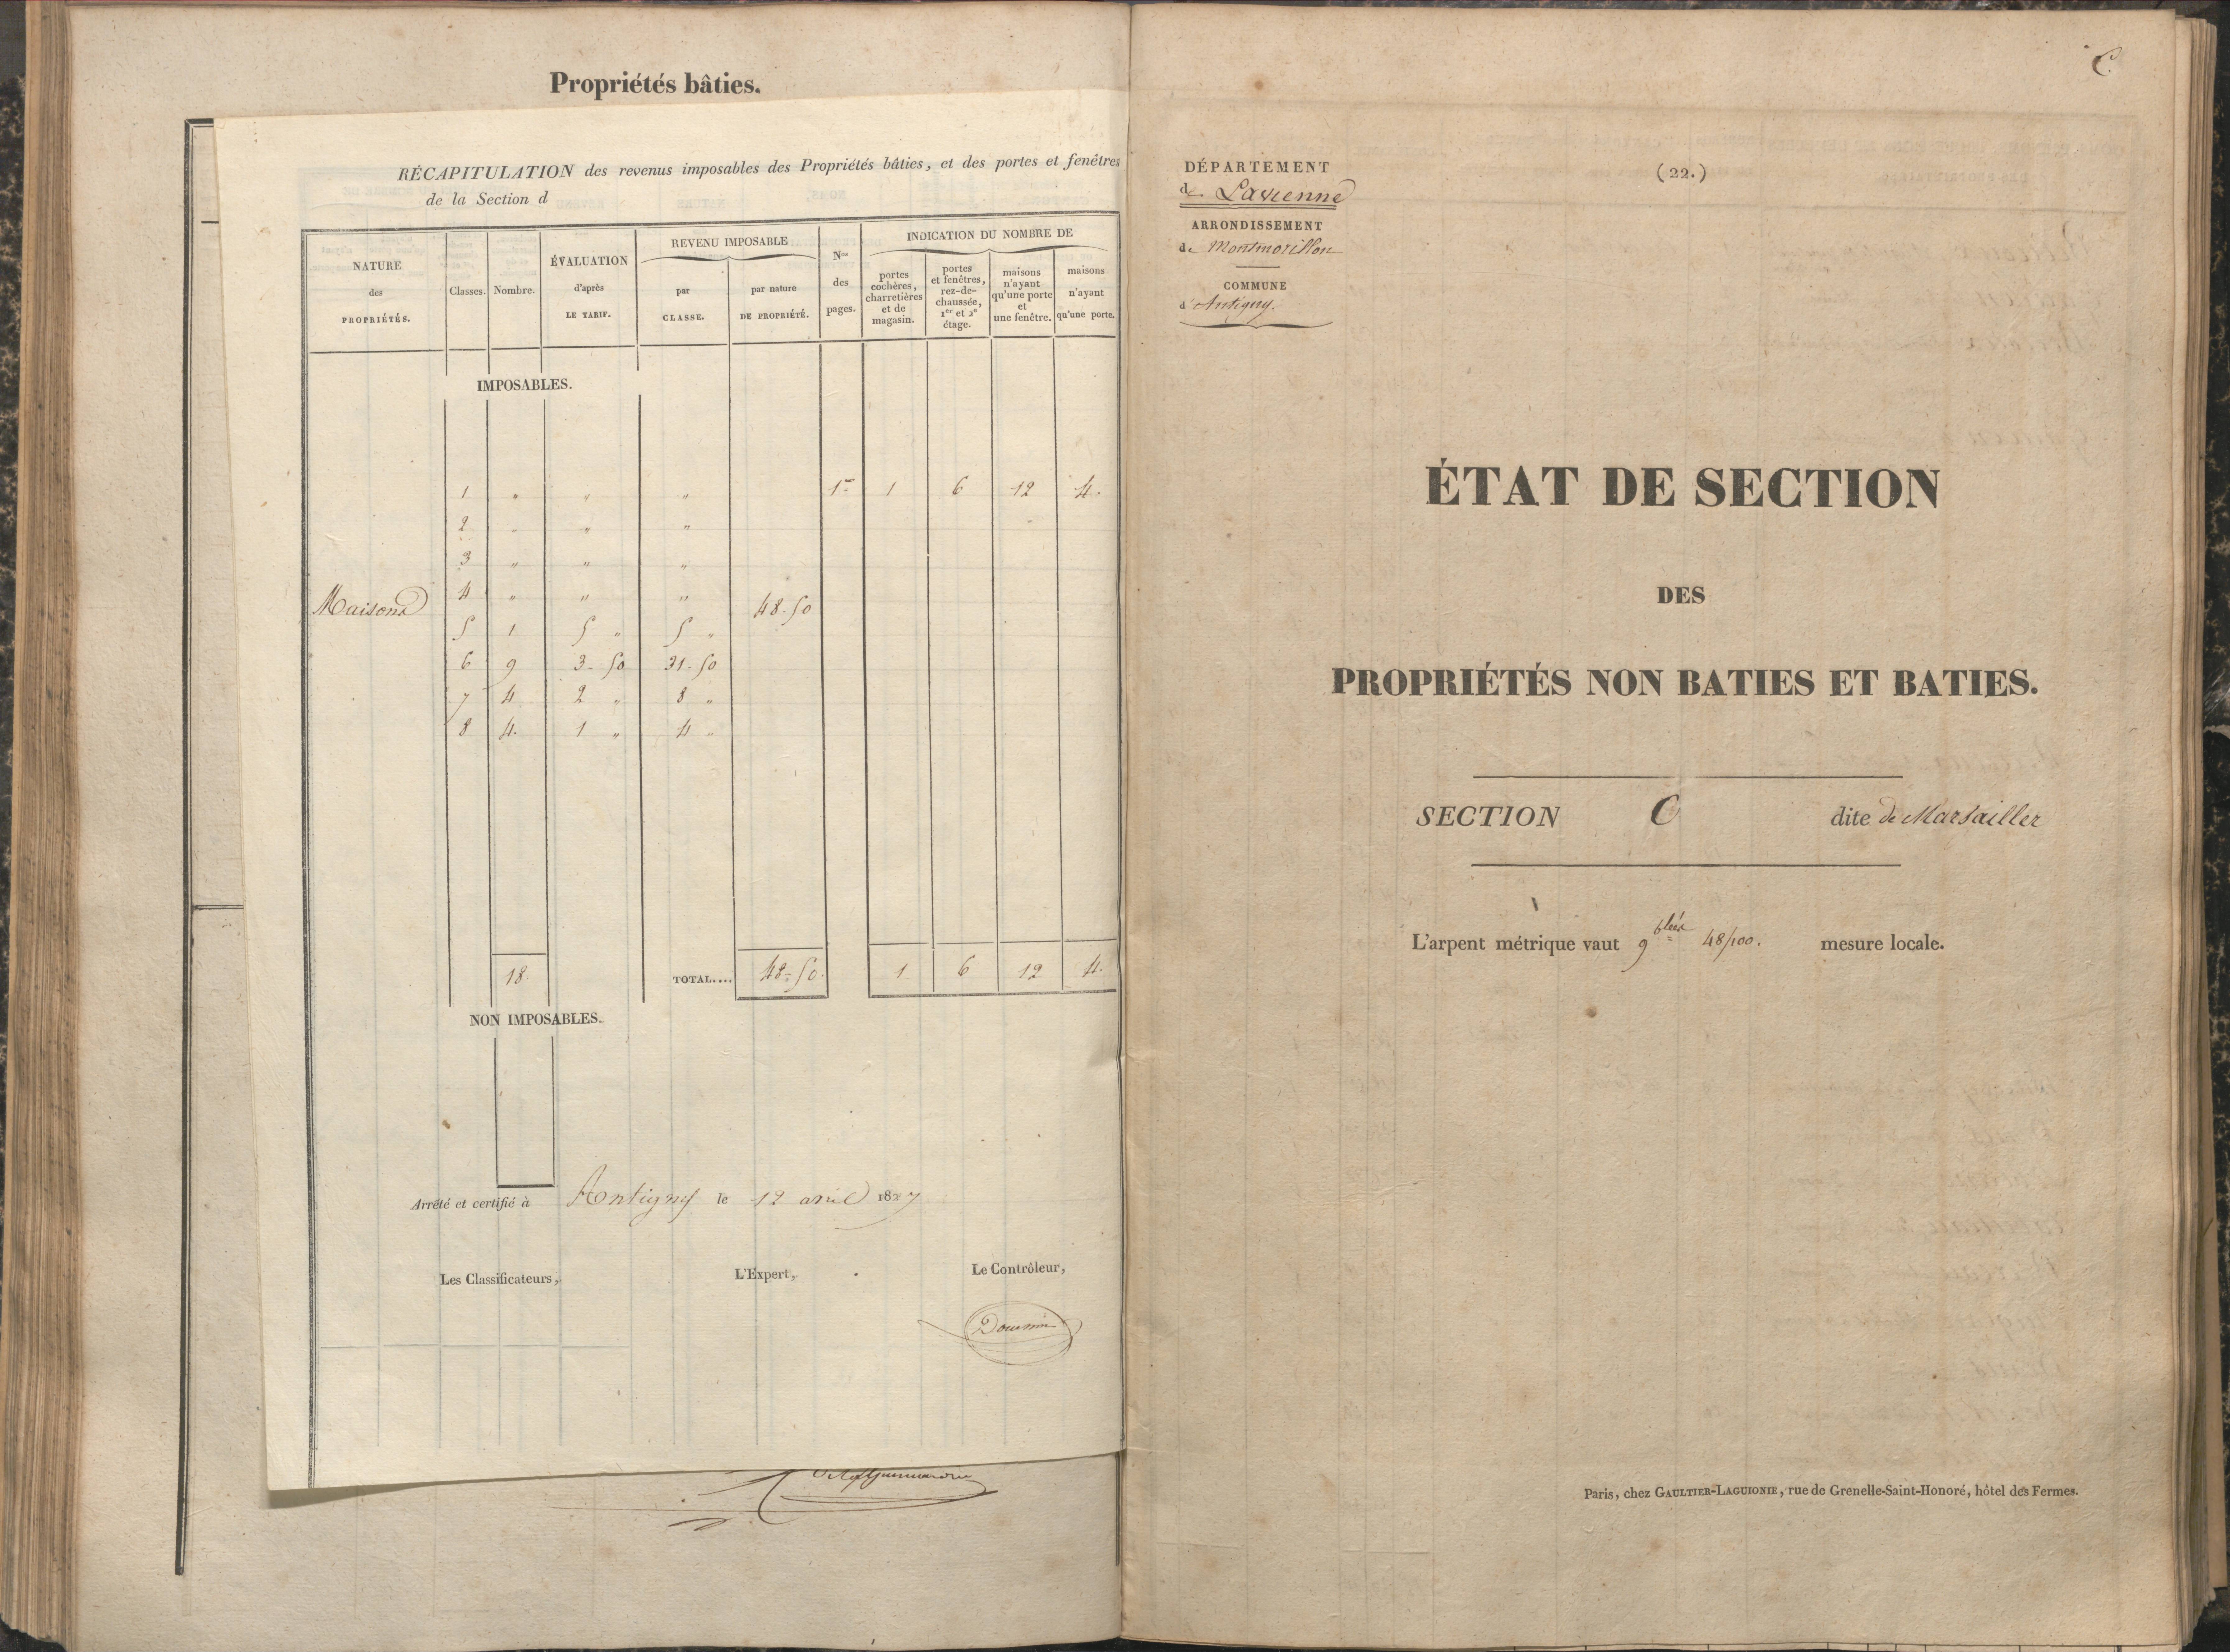 Propriétés bâties.
RÉCAPITULATION des revenus imposables des Propriétés bâties, et des portes et fenêtres
de la Section d
NATURE des PROPRIÉTÉS.
Classes.
Nombre.
ÉVALUATION d'après LE TARIF.
REVENU IMPOSABLE
par CLASSE.
par nature DE PROPRIÉTÉ.
Nos des pages.
INDICATION DU NOMBRE DE
portes cochères, charretières et de magasin.
portes et fenêtres, rez-de-chaussée, 1er et 2e étage.
maisons n'ayant qu'une porte et une fenêtre.
maisons n'ayant qu'une porte.
IMPOSABLES.
1 " " " 1re 1 6 12 4.
2 " " "
3 " " "
4 " " "
Maisons 48.50
5 1 5 " 5 "
6 9 3-50 31-50
7 4 2 " 8 "
8 4. 1 " 4 "
18 TOTAL.... 48-50. 1 6 12 4.
NON IMPOSABLES.
Arrêté et certifié à Antigny le 12 avril 1827
Les Classificateurs, L'Expert, Le Contrôleur,
C.
DÉPARTEMENT
de Lavienne
(22.)
ARRONDISSEMENT
de Montmorillon
COMMUNE
d'Antigny.
ÉTAT DE SECTION
DES
PROPRIÉTÉS NON BATIES ET BATIES.
SECTION C dite de Marsailler
L'arpent métrique vaut 9 48/100. mesure locale.
Paris, chez GAULTIER-LAGUIONIE, rue de Grenelle-Saint-Honoré, hôtel des Fermes.